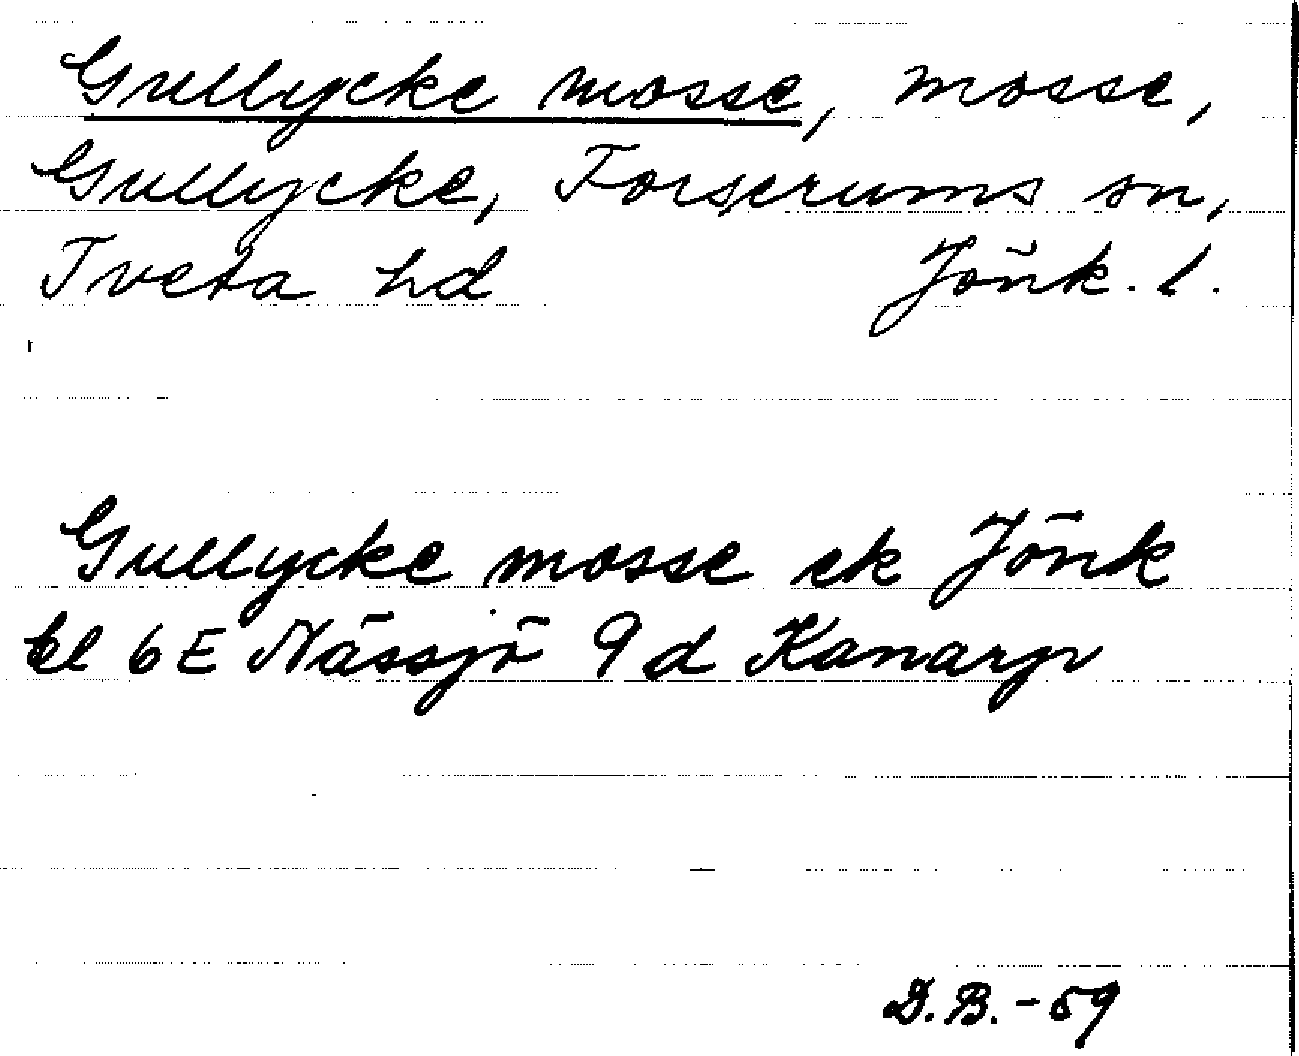 Gullycke mosse, mosse,
Gullycke, Forserums sn,
Tveta hd Jönk. l.
Gullycke mosse ek Jönk
bl 6E Nässjö 9d Kanarp
D.B. -59